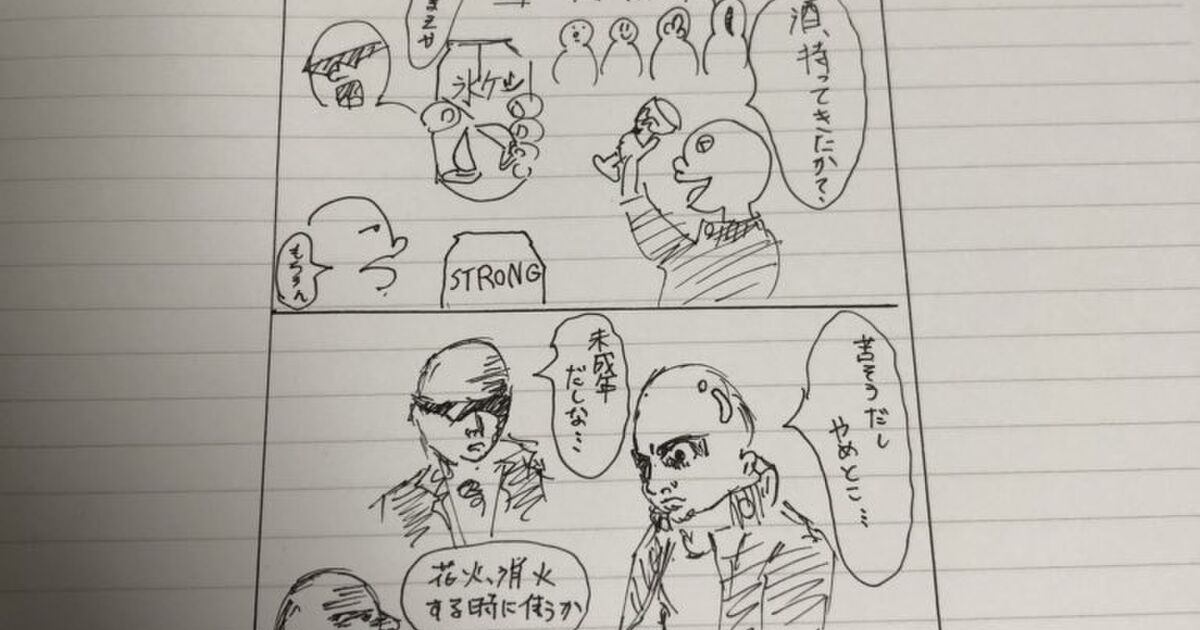 酒、持ってきたか?
まえや
氷ケツ
もちろん
STRONG
苦そうだし
やめとこ…
未成年
だしな…
花火、消火
する時に使うか